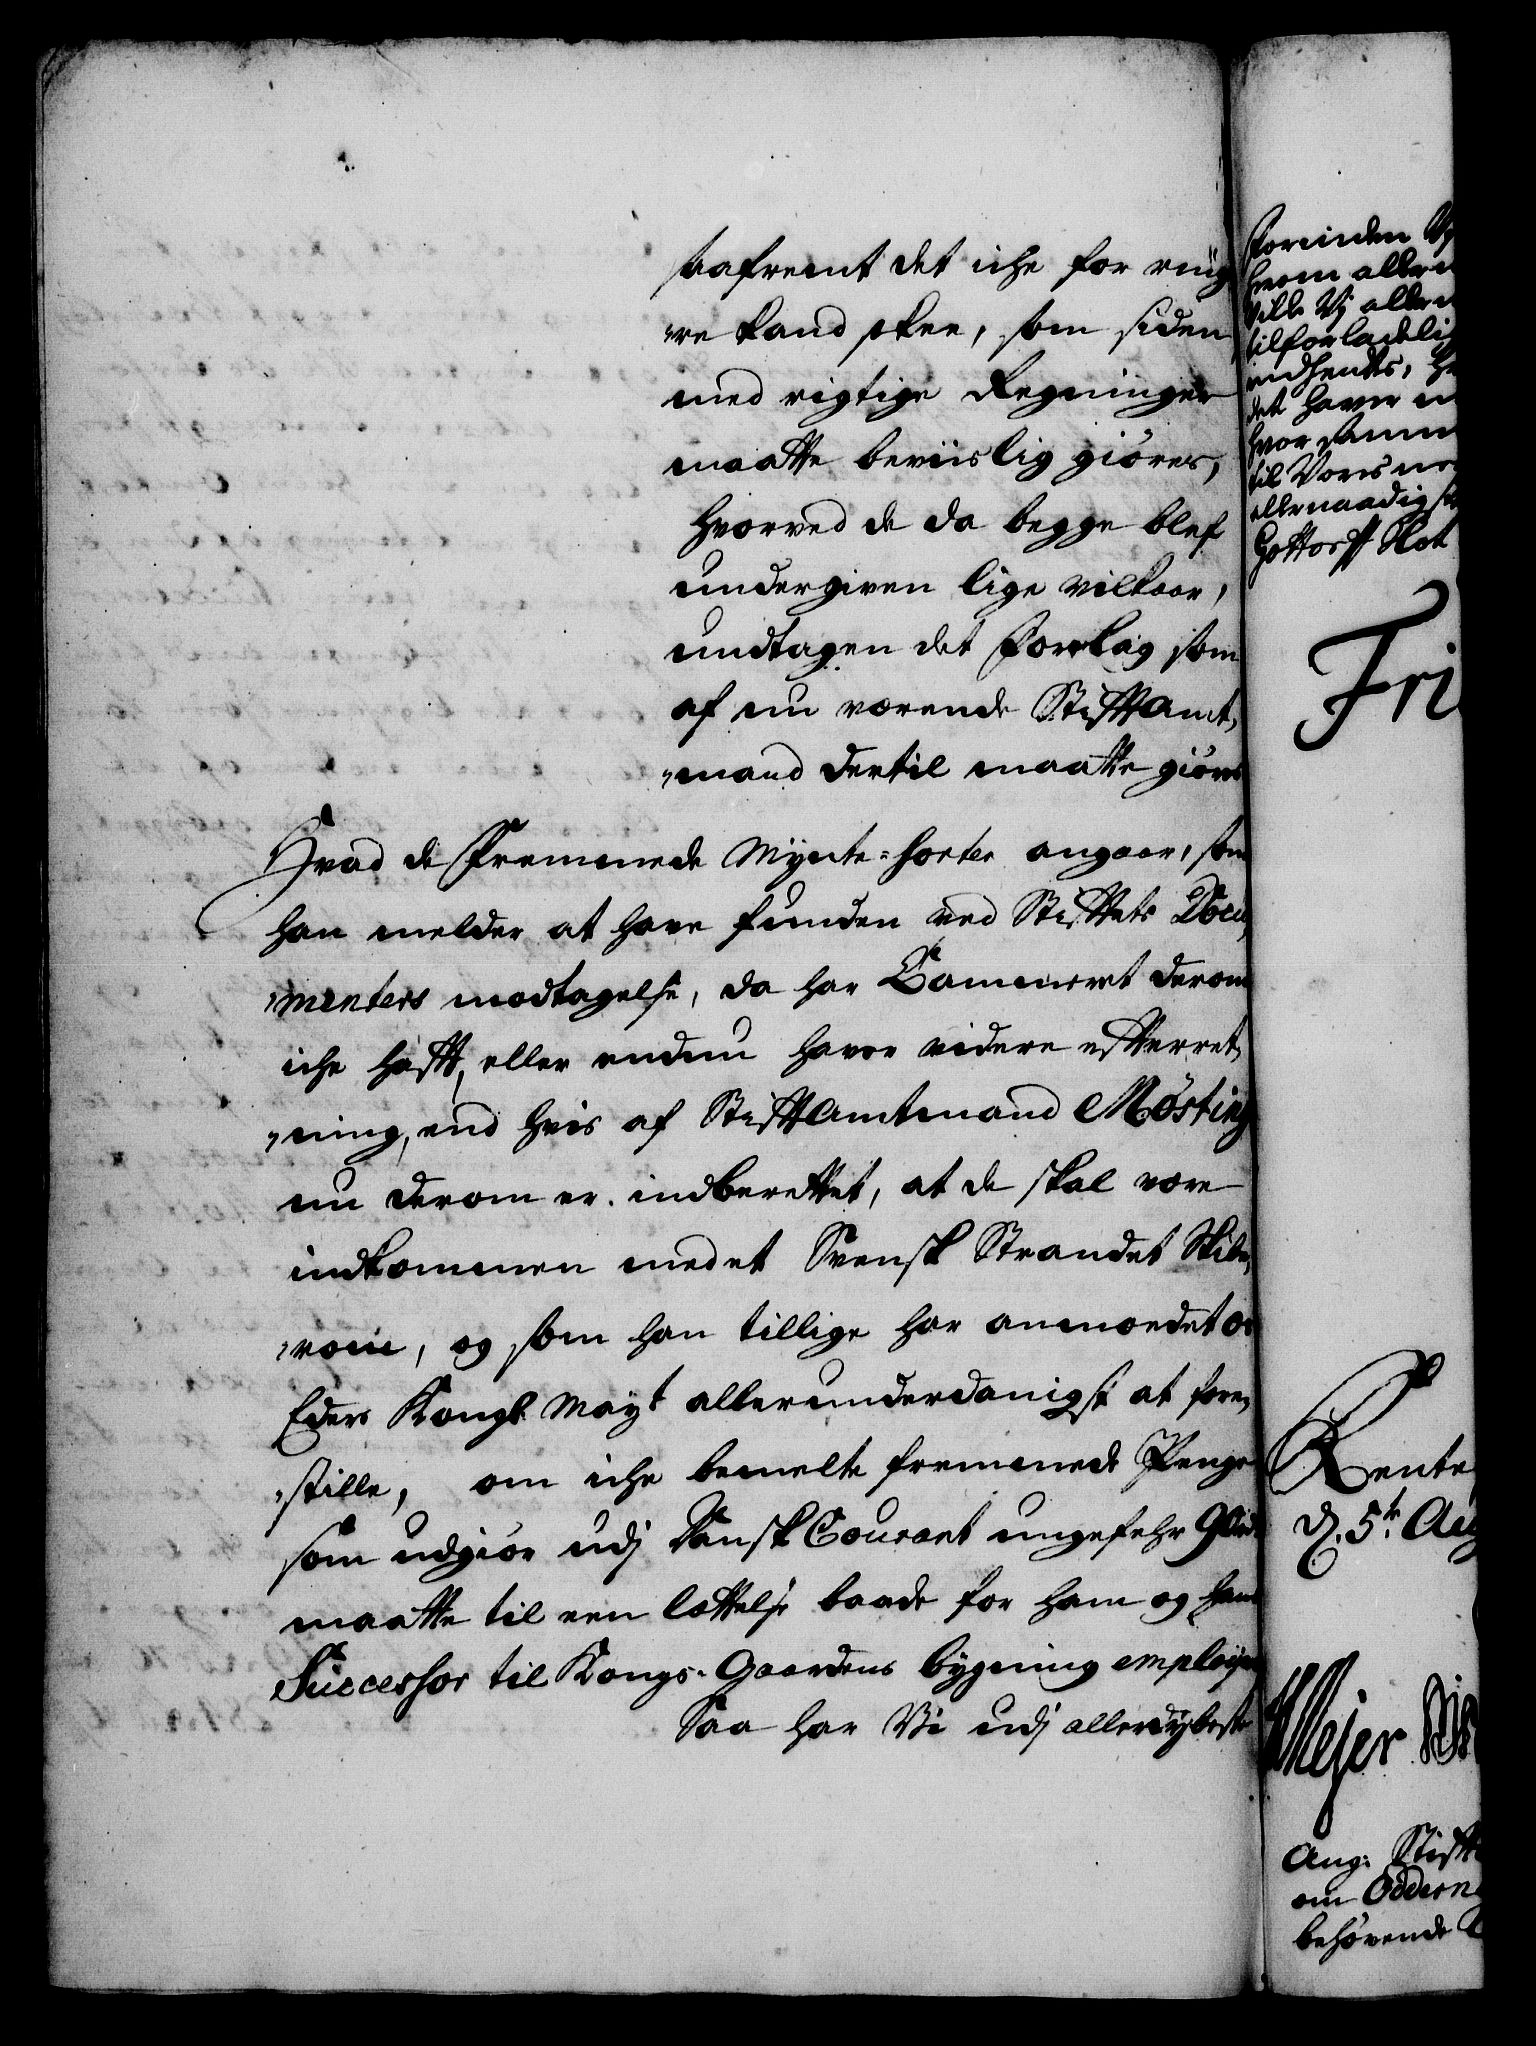 saafremt det iche for ring,
„re kand skee, som siden
med rigtige Regninger
maatte beviislig giöres,
hvorved de da begge blef
undergiven lige vilkaar,
undtagen det Forslag som
af nu værende StifftAmt,
„mand dertil maatte giöres
Hvad de Fremmede Mynte-Sorter angaar, som
han melder at have funden ved Stifftets Docu,
„menters modtagelse, da har Cammeret derom
iche hafft, eller endnu haver videre effterret,
„ning, end hvis af StifftAmtmand Mösting
nu derom er indberettet, at de skal være
indkommen med et Svensk Strandet Skibs,
„vom, og som han tillige har anmoedet os
Eders Kongl. Mayt allerunderdanigst at fore,
„stille, om iche bemelte fremmede Penge
som udgiör udj Dansk Courant ungefehr
maatte til een lættelse baade for ham og hans
Successor til Kongs-Gaardens bygning employes
Saa har Vi udj allerdybeste
Forinden
herom aller
ville Vj aller
tilforladeli
indhentes,
det haver
hvor
til Voris
allernaadigst
Gottorff Slot
Fri
Rente
D. 5t Aug
Mejer
Ang: Stifft
om Oddern
behövende